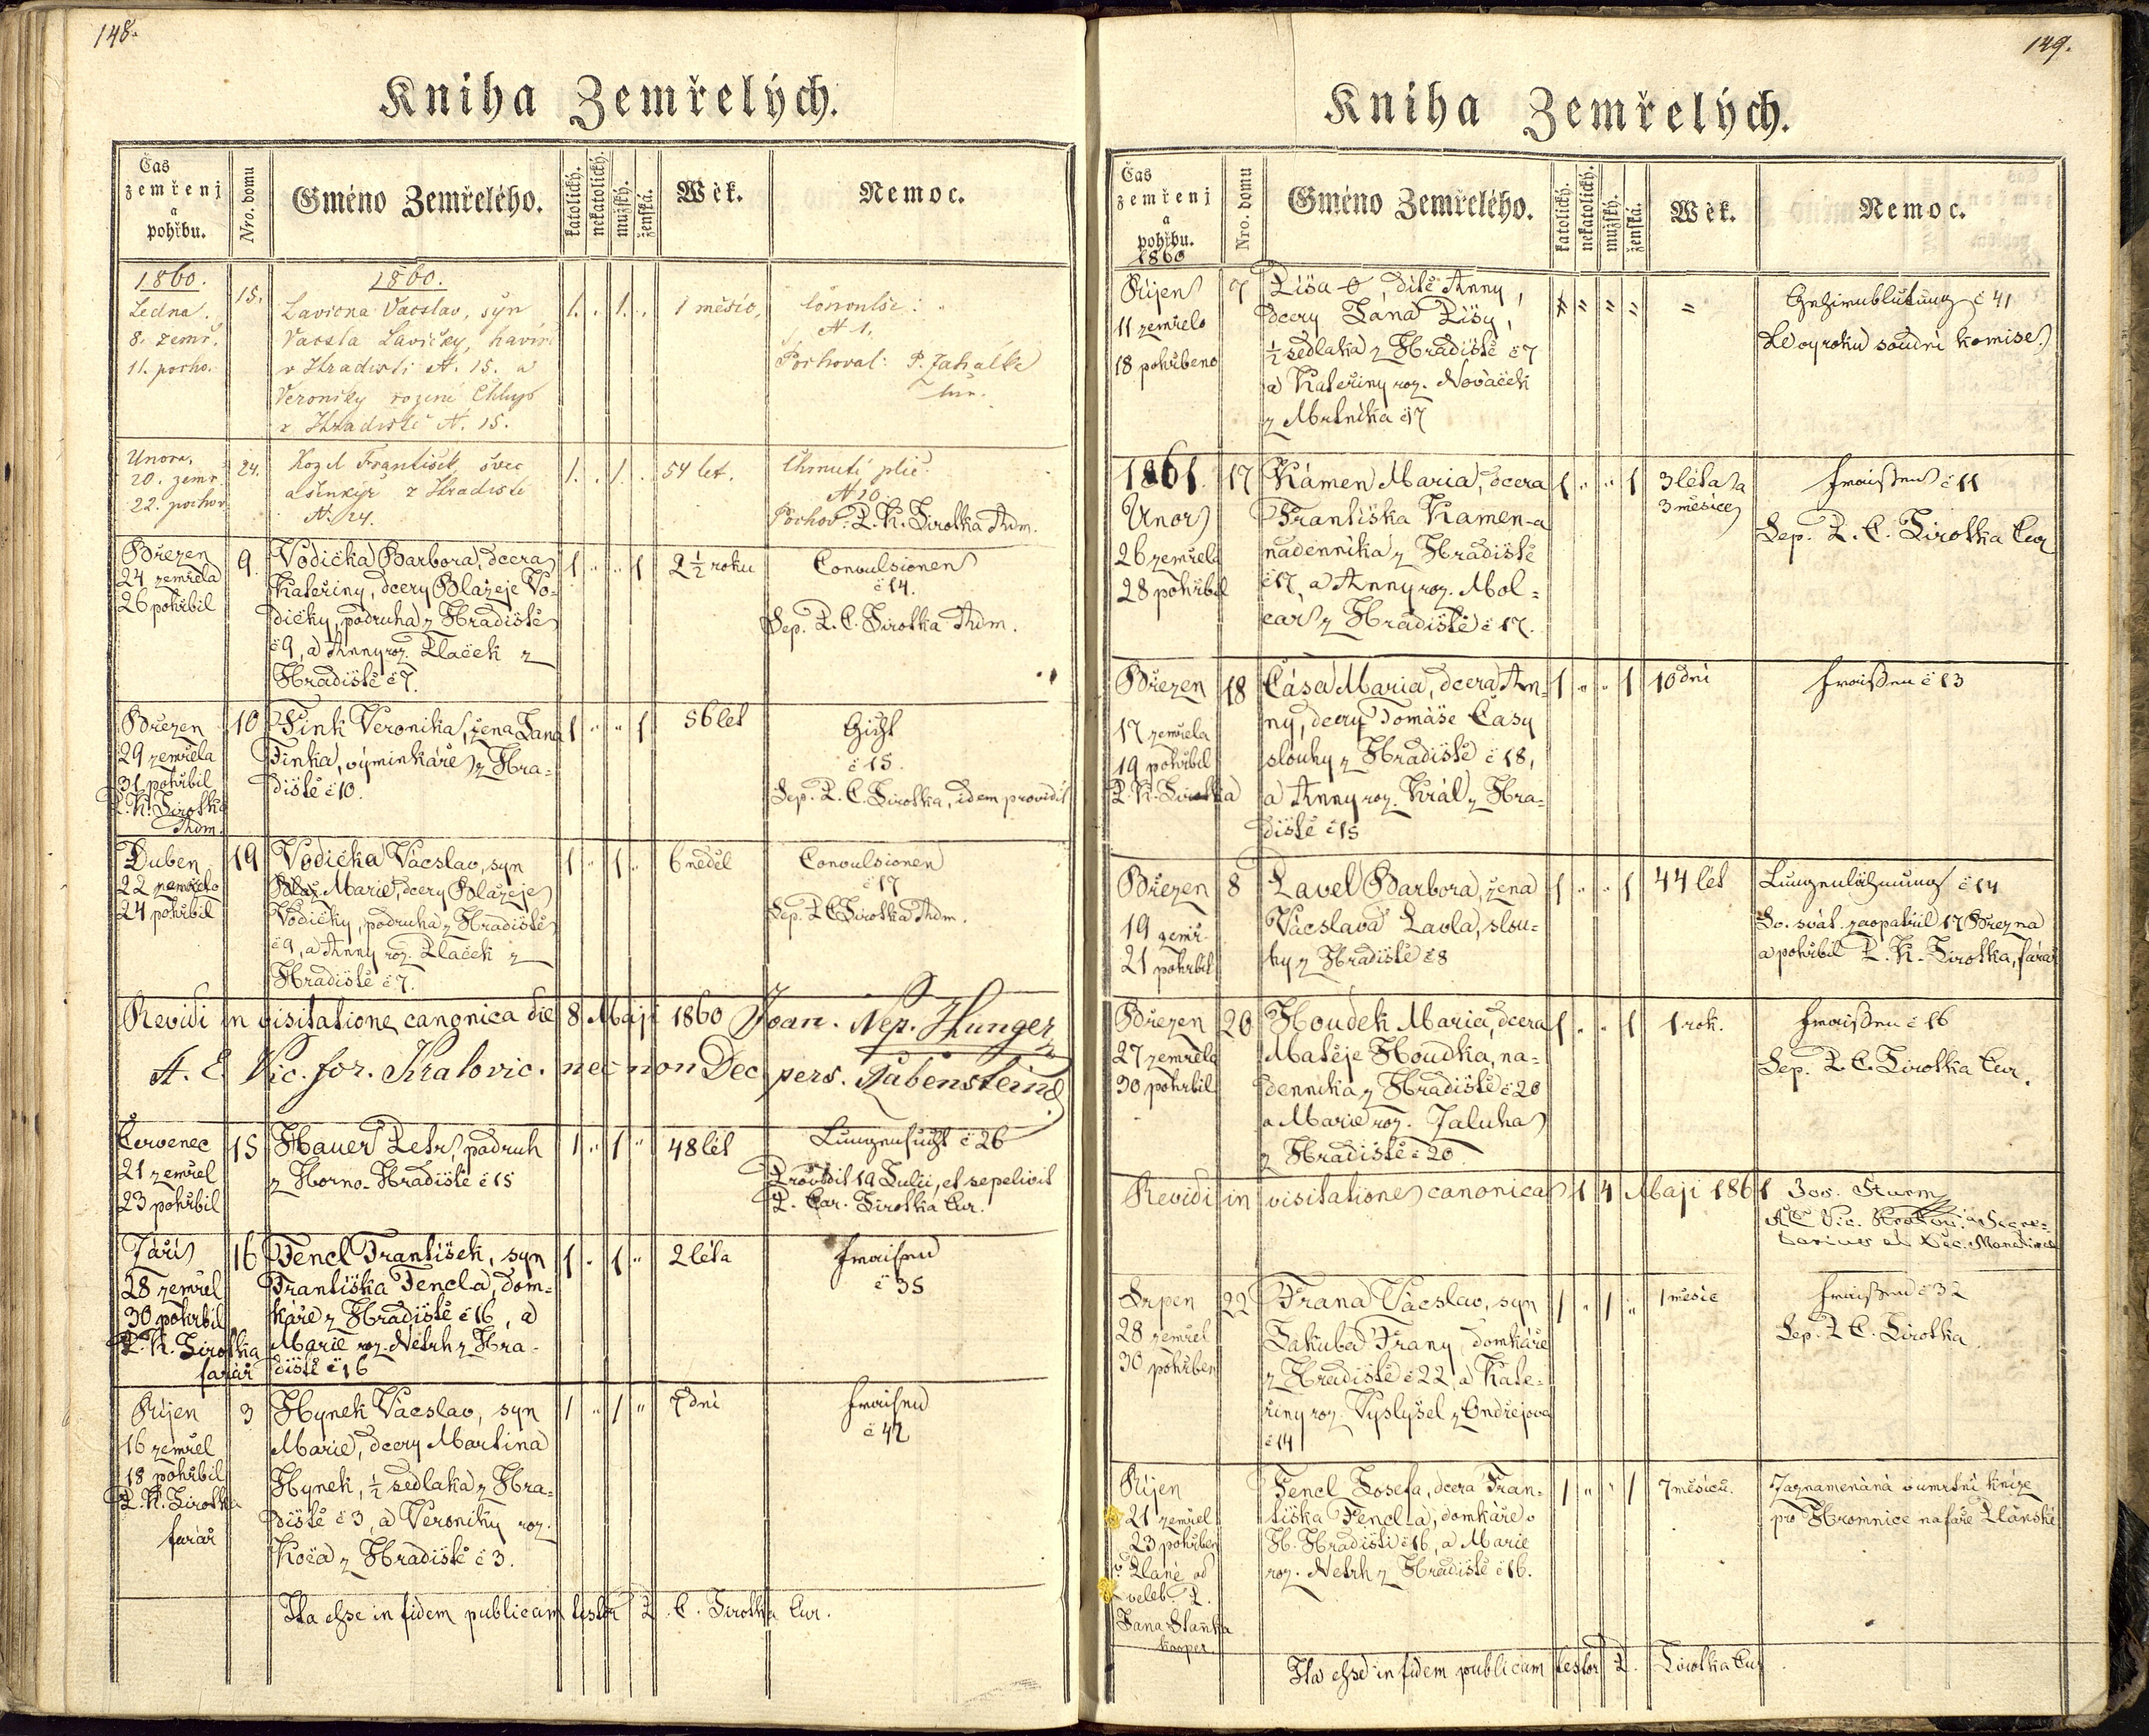 148.
Kniha Zemřelých.
Čas zemřenj a pohřbu.
Nro. domu
Gméno Zemřelého.
katolický.
nekatolický.
mužský.
ženská.
Wěk.
Nemoc.
1860.
1860.
Ledna.
8. zemř.
11. pocho.
15.
Lavička Vacslav, syn
Vacsla Lavičky, havíř
v Hradisti N. 15. a
Veroniky rozené Chlup
z Hradiste N. 15.
1. . 1. .
1 měsíc,
N 1.
Pochoval: P. Zahalka
Unora,
20. zemr.
22. pochov
24.
Kozel František, švec
a šenkýř z Hradiste
N. 24.
1. . 1. .
54 let.
Chrnutí plic.
N 10.
Pochov: P. K. Sirotka Adm.
Březen
24 zemřela
26 pohřbil
9.
Vodička Barbora, dcera
Kateřiny, dcery Blažeje Vo=
dičky, podruha z Hradiště
č 9, a Anny roz. Plaček z
Hradiště č 7.
1 " " 1
2 1/2 roku
Convulsionen
č 14.
Sep. P. C. Sirotka Adm.
Březen
29 zemřela
31 pohřbil
P. K. Sirotka
Adm.
10
Fink Veronika, žena Jana
Finka, výminkáře z Hra=
diště č 10.
1 " " 1
56 let
Gicht
č 15.
Sep. P. C. Sirotka, idem providit
Duben
22 zemřelo
24 pohřbil
19
Vodička Vácslav, syn
Blaž Marie, dcery Blažeje
Vodičky, podruha z Hradiště
č 9, a Anny roz. Plaček z
Hradiště č 7.
1 " 1 "
6 neděl
Convulsionen
č 17
Sep. P C Sirotka Adm.
Revidi in visitatione canonica die 8 Maji 1860 Joan. Nep. Hunger
A. E. Vic. for. Kralovic. nec non Dec pers. Rabenstein
Červenec
21 zemřel
23 pohřbil
15
Hauer Petr, podruh
z Horno-Hradiště č 15
1 " 1 "
48 let
Lungensucht č 26
Providit 19 Julii, et sepelivit
P. Car. Sirotka Cur.
Září
28 zemřel
30 pohřbil
P. K. Sirotka
farář
16
Fencl František, syn
Františka Fencla, dom=
káře z Hradiště č 16, a
Marie roz. Netrh z Hra=
diště č 16
1 " 1 "
2 léta
Fraisen
č 35
Říjen
16 zemřel
18 pohřbil
P. K. Sirotka
farář
3
Hynek Vácslav, syn
Marie, dcery Martina
Hynek, 1/2 sedlaka z Hra=
diště č 3, a Veroniky roz.
Koča z Hradiště č 3.
1 " 1 "
7 dní
Fraisen
č 42
Ita esse in fidem publicam testor P. C. Sirotka Cur.
149.
Kniha Zemřelých.
Čas zemřenj a pohřbu.
Nro. domu
Gméno Zemřelého.
katolický.
nekatolický.
mužský.
ženská.
Wěk.
Nemoc.
1860
Říjen
11 zemřelo
18 pohřbeno
7
Píša-0, dítě Anny,
dcery Jana Píšy,
1/2 sedlaka z Hradiště č 7
a Kateřiny roz. Nováček
z Mrtníka č 17
" " " "
=
Gehirnblutung č 41
Dle výroku soudní komise.
1861.
Unor
26 zemřela
28 pohřbil
17
Kámen Maria, dcera
Františka Kamen-a
nádenníka z Hradiště
č 17, a Anny roz. Mol=
car z Hradiště č 17.
1 " " 1
3 léta a
3 měsíce
Fraißen č 11
Sep. P. C. Sirotka Cur.
Březen
17 zemřela
19 pohřbil
P. K. Sirotka
18
Čása Maria, dcera An=
ny, dcery Tomáše Časy
slouhy z Hradiště č 18,
a Anny roz. Král z Hra=
diště č 15
1 " " 1
10 dní
Fraißen č 13
Březen
19 zemř.
21 pohřbil
8
Pavel Barbora, žena
Vácslava Pavla, slou=
hy z Hradiště č 8
1 " " 1
44 let
Lungenlähmung č 14
Sv. svát. zaopatřil 17 Března
a pohřbil P. K. Sirotka, farář
Březen
27 zemřela
30 pohřbil
20
Houdek Maria, dcera
Matěje Houdka, ná=
denníka z Hradiště č 20
a Marie roz. Zaluha
z Hradiště č 20.
1 " " 1
1 rok.
Fraißen č 16
Sep. P. C. Sirotka Cur.
Revidi in visitatione canonica 14 Maji 1861 Jos. Sturm
Srpen
28 zemřel
30 pohřben
22
Frana Vácslav, syn
Jakuba Frany, domkáře
z Hradiště č 22, a Kate=
řiny roz. Vyslyšel z Ondřejova
č 14
1 " 1 "
1 měsíc
Fraißen č 32
Sep. P. C. Sirotka
Říjen
21 zemřel
23 pohřben
v Pláné od
veleb. P.
Jana Staňka
kooper.
Fencl Josefa, dcera Fran=
tiška Fencl-a, domkáře v
H. Hradišti č 16, a Marie
roz. Netrh z Hradiště č 16.
1 " " 1
7 měsíců.
Zaznamenána v úmrtní knize
pro Hromnice na faře Plánské
Ita esse in fidem publicam testor P. Sirotka Cur